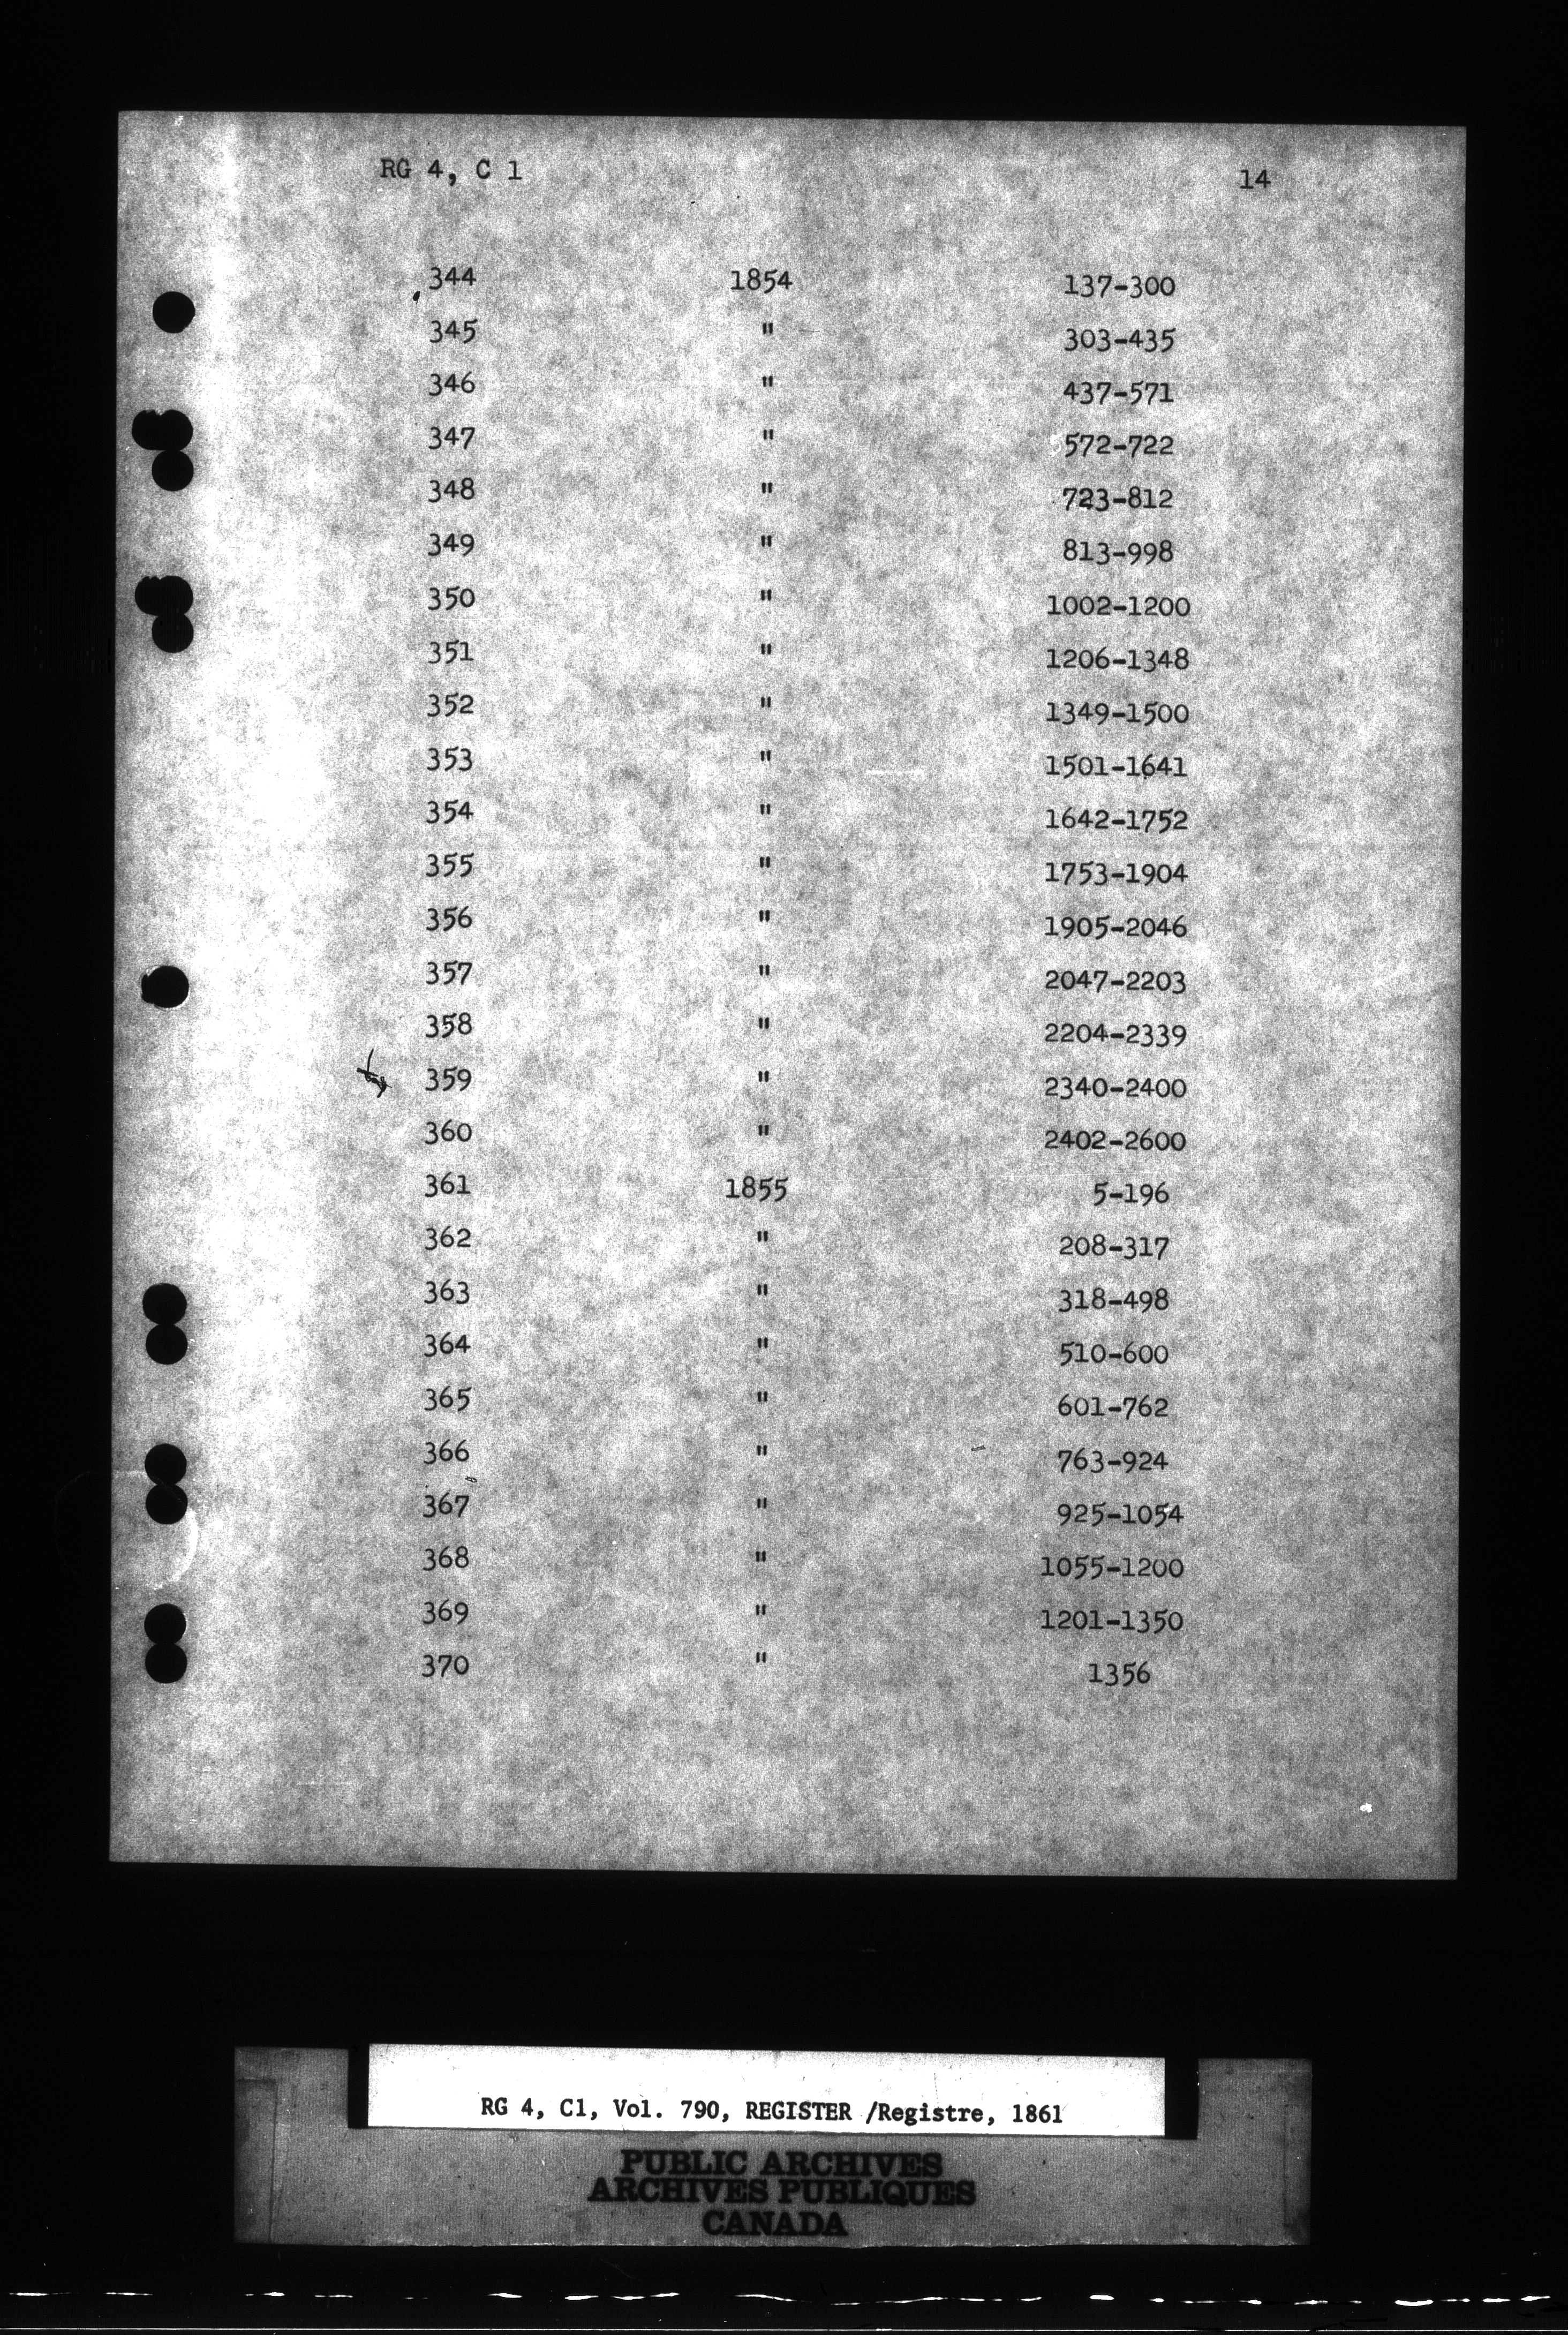 RG 4, C 1 14
344 1854 137-300
345 " 303-435
346 " 437-571
347 " 572-722
348 " 723-812
349 " 813-998
350 " 1002-1200
351 " 1206-1348
352 " 1349-1500
353 " 1501-1641
354 " 1642-1752
355 " 1753-1904
356 " 1905-2046
357 " 2047-2203
358 " 2204-2339
359 " 2340-2400
360 " 2402-2600
361 1855 5-196
362 " 208-317
363 " 318-498
364 " 510-600
365 " 601-762
366 " 763-924
367 " 925-1054
368 " 1055-1200
369 " 1201-1350
370 " 1356
RG 4, C1, Vol. 790, REGISTER /Registre, 1861
PUBLIC ARCHIVES
ARCHIVES PUBLIQUES
CANADA